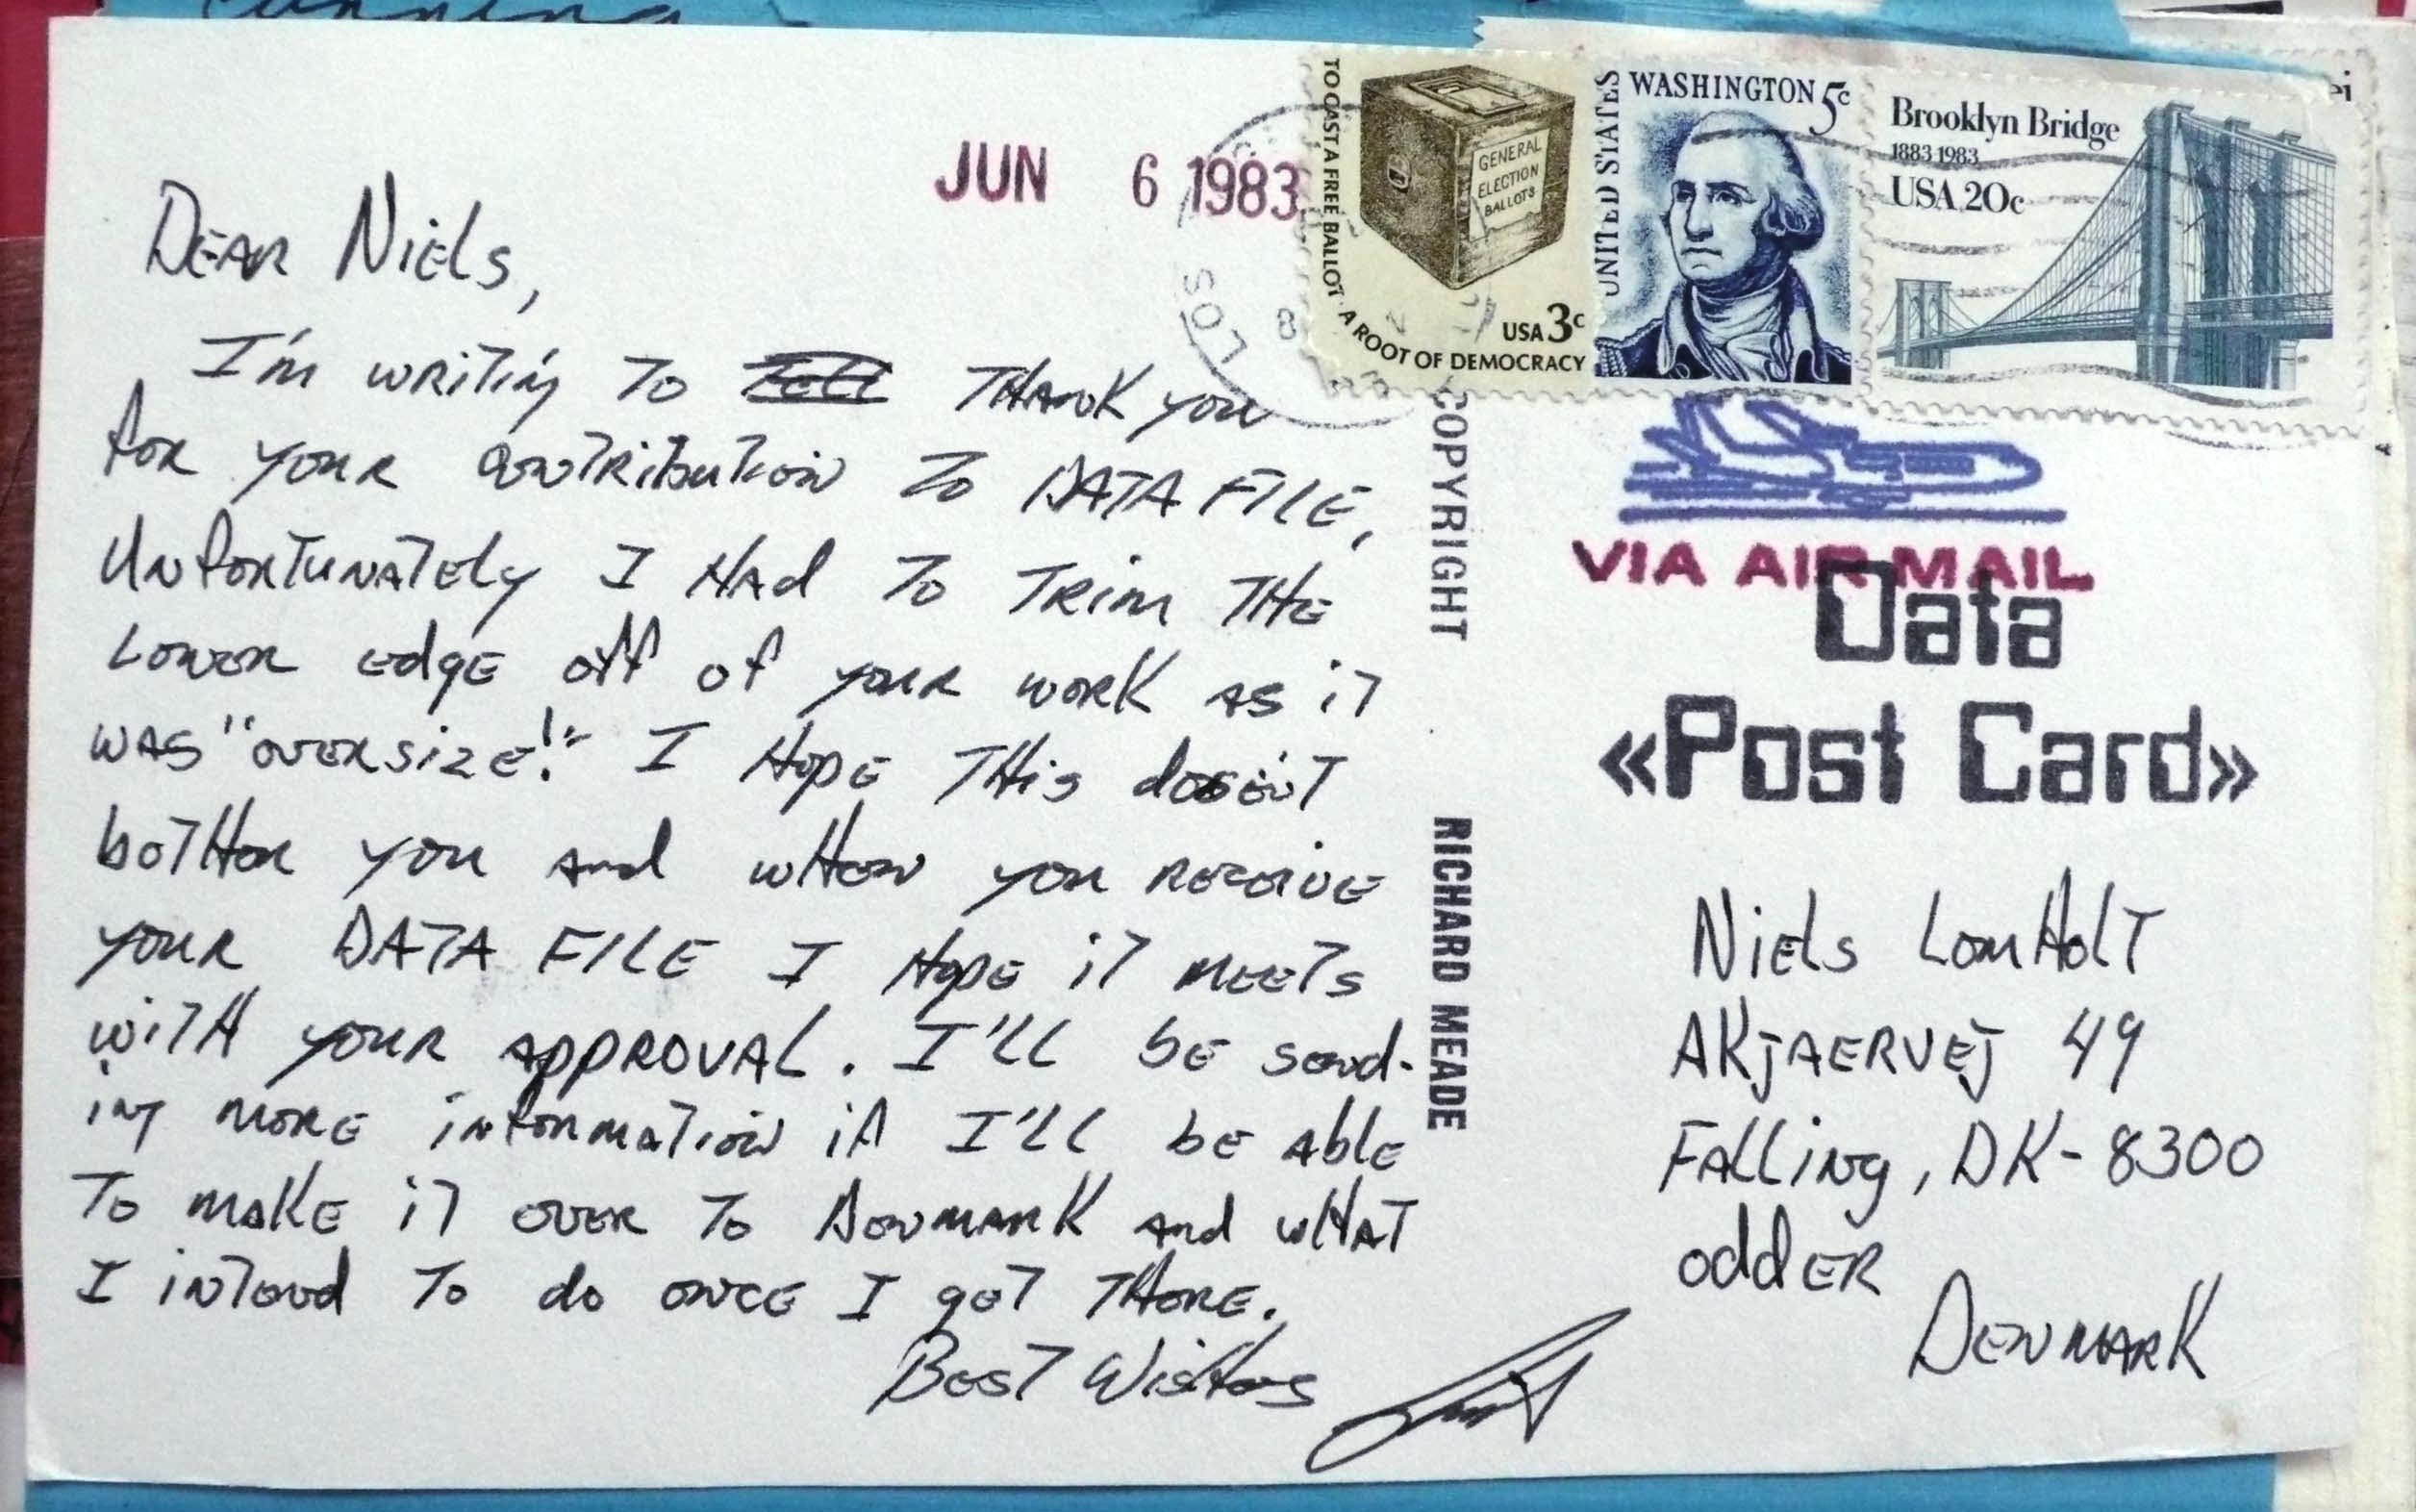 JUN 6 1983
DEAR NIELS,
I'm writing to tell THANK you
for your contribution to DATA FILE,
Unfortunately I HAd to TRim THE
Lower edge off of your work as it
was "oversize!" I Hope THis doesn't
botHer you and wHen you receive
your DATA FILE I Hope it meets
witH your APPROVAL. I'LL be send-
ing more information if I'LL be able
To make it over to Denmark and wHAT
I intend to do once I get THere.
Best WisHes
TO CAST A FREE BALLOT · A ROOT OF DEMOCRACY
GENERAL
ELECTION
BALLOTS
USA 3c
UNITED STATES
WASHINGTON 5c
Brooklyn Bridge
1883 1983
USA 20c
LOS
COPYRIGHT RICHARD MEADE
VIA AIR MAIL
Data
«Post Card»
Niels LomHolt
AKJAERVEJ 49
Falling, DK-8300
odder
DENMARK